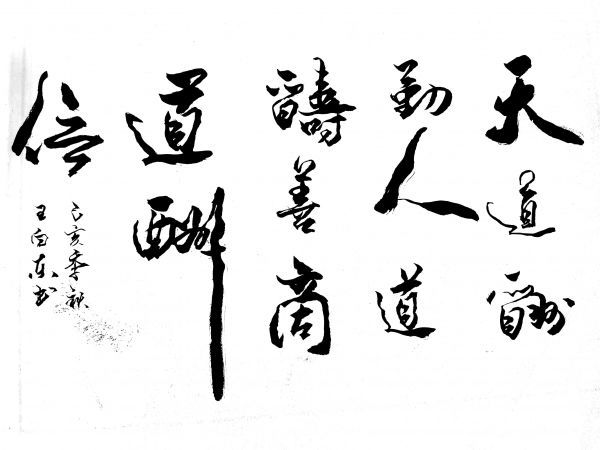 天道酬
勤人道
醻善商
道酬
信
己亥季秋
王东书